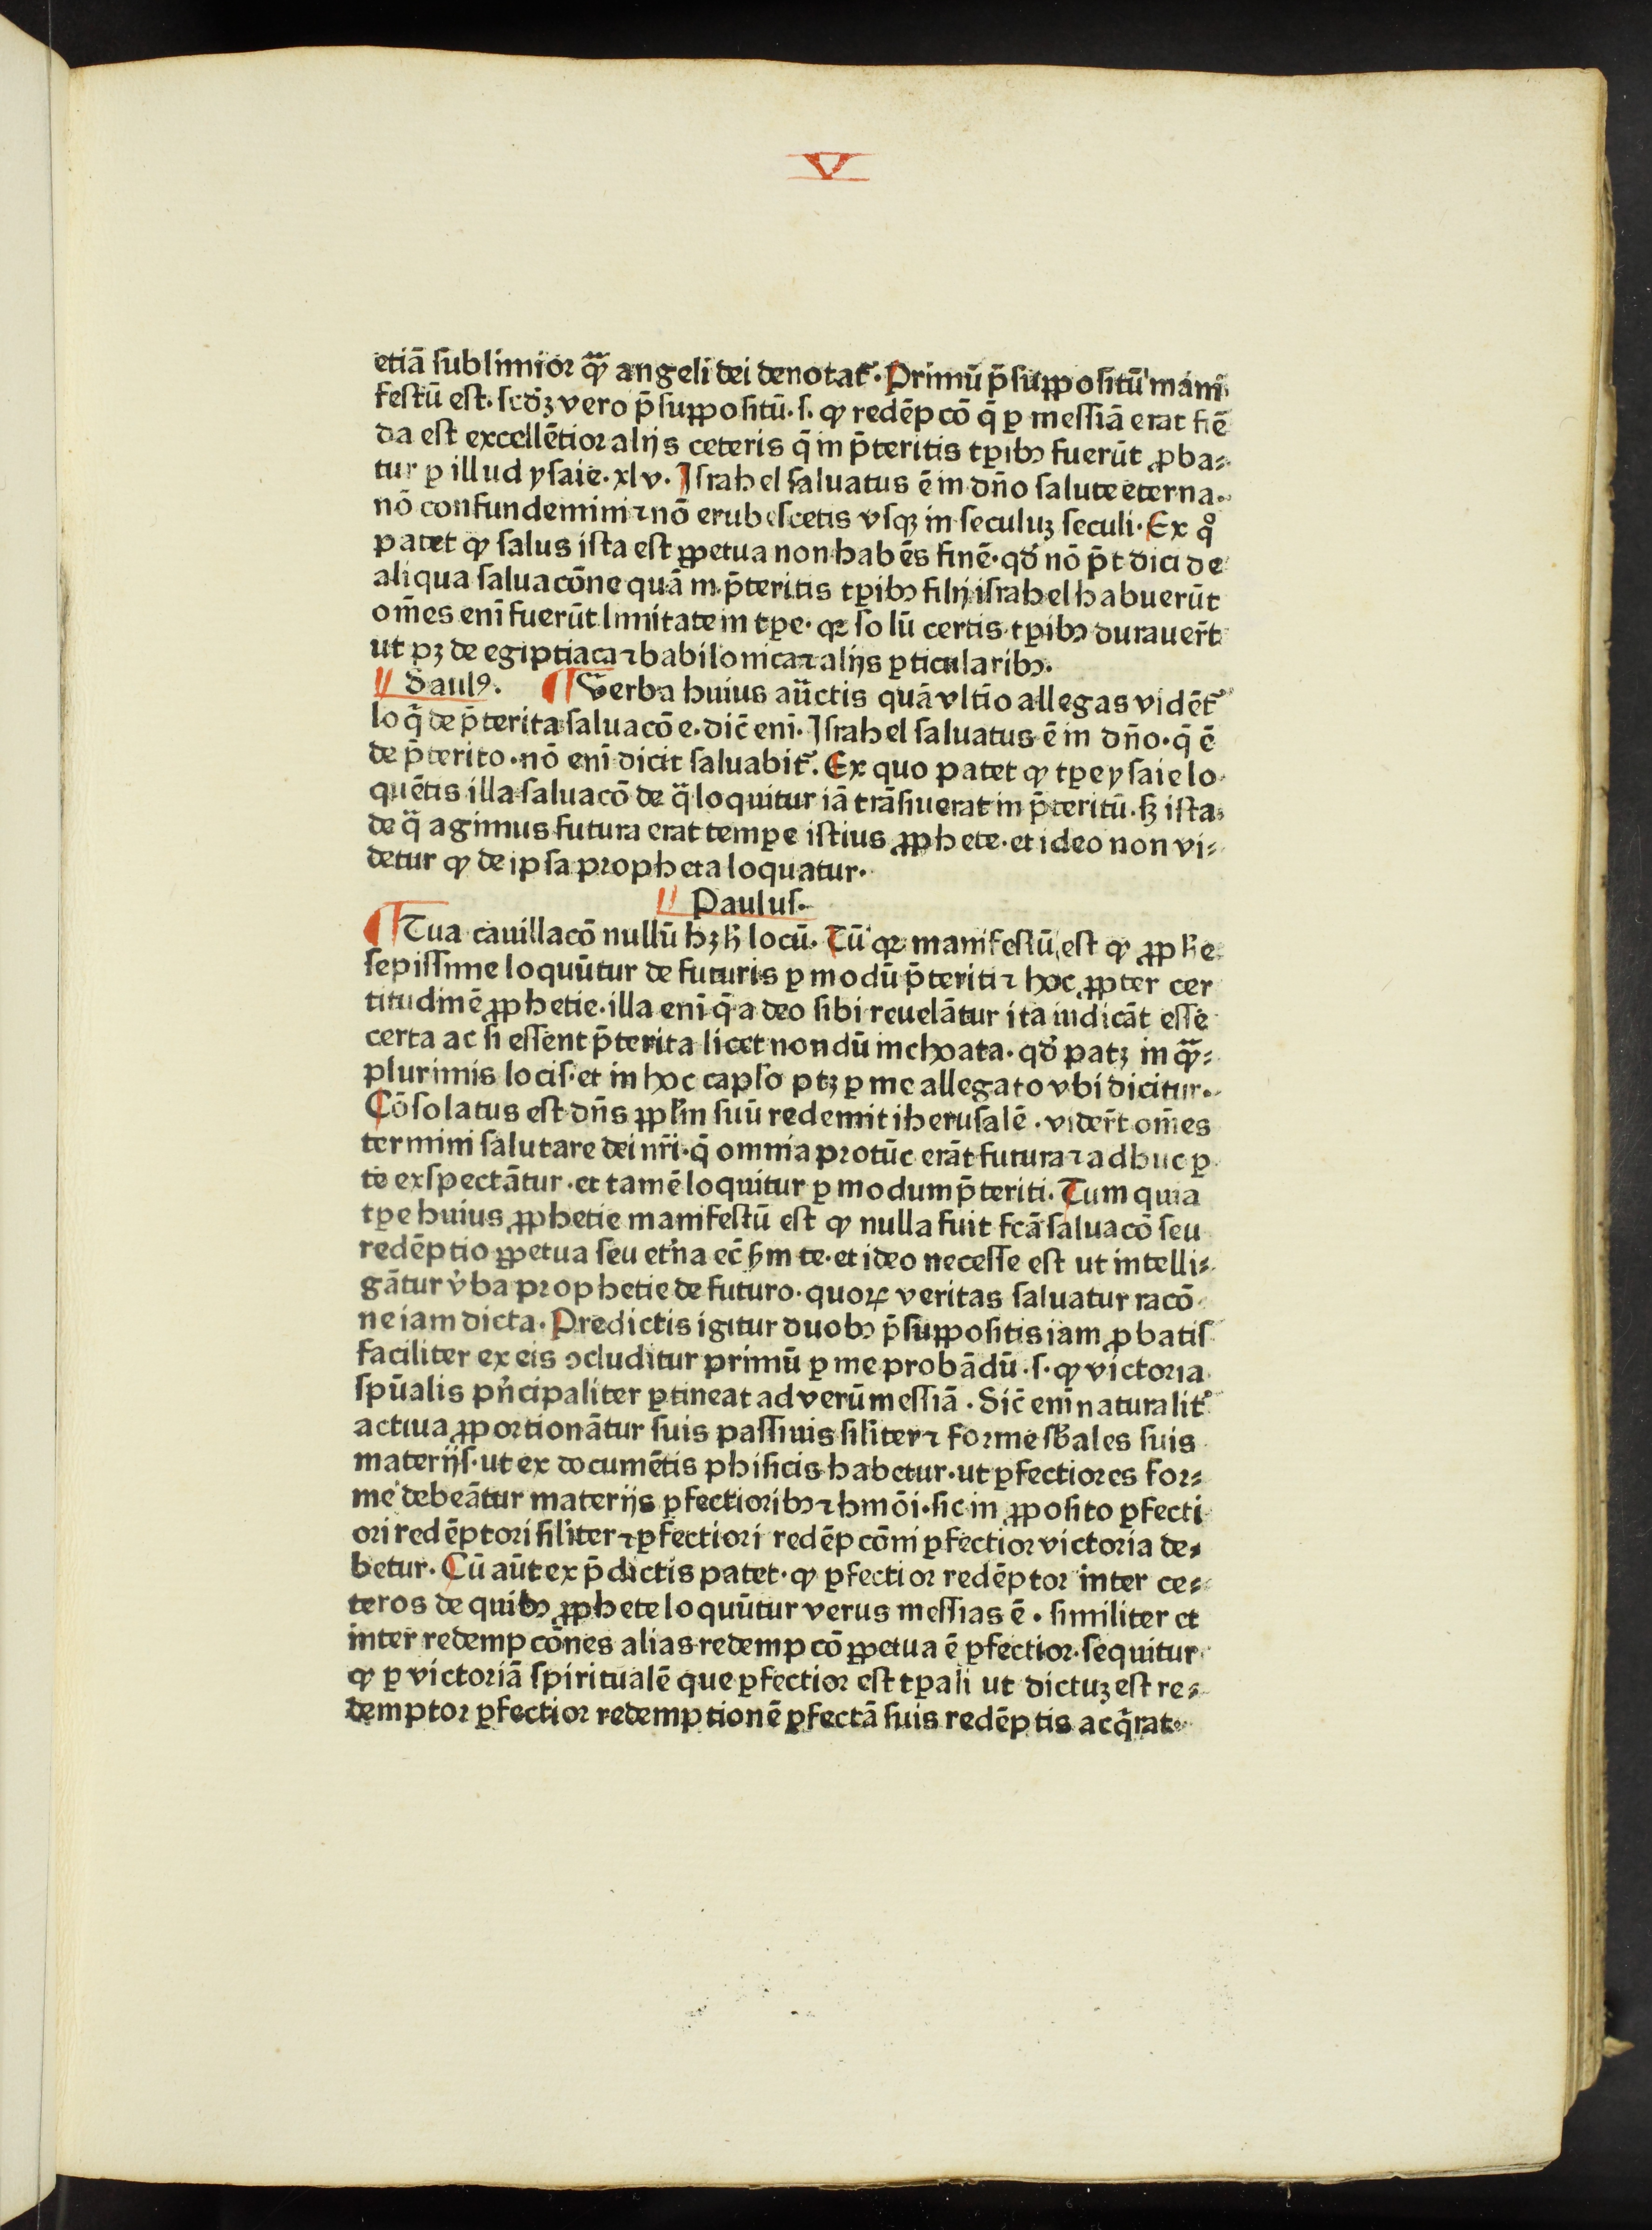 V
etiā sublimior ꝙ̄ angeli dei denotat᷑. Primū p̄suppositū mani-
festū est. scd'ꝫ vero p̄suppositū. s. ꝙ redēpcō q̄ ꝑ messiā erat fiē
da est excellētior alijs ceteris q̄ in p̄teritis tꝑibꝰ fuerūt ꝓba⸗
tur ꝑ illud ysaie. xlv. Israhel saluatus ē in dn̄o salute eterna.
nō confundemini ⁊ nō erubescetis vsqꝫ in seculuꝫ seculi. Ex qͦ
patet ꝙ salus ista est ꝑpetua non habēs finē. qd' nō p̄t dici de
aliqua saluacōne quā in p̄teritis tꝑibꝰ filij israhel habuerūt
om̄es eni fuerūt limitate in tꝑe. qꝛ solū certis tꝑibꝰ durauer̄t
ut pꝫ de egiptiaca ⁊ babilonica ⁊ alijs ꝑticularibꝰ.
Saulꝰ. Verba huius au̅ctis quā vltīo allegas vidēt᷑
loq̄ de p̄terita saluacōe. dic̄ enī. Israhel saluatus ē in dn̄o. q̄ ē
de p̄terito. nō enī dicit saluabit᷑. Ex quo patet ꝙ tꝑe ysaie lo
quētis illa saluacō de q̄ loquitur iā trāsiuerat in p̄teritū. sꝫ ista
de q̄ agimus futura erat tempe istius ꝓphete. et ideo non vi⸗
detur ꝙ de ipsa propheta loquatur.
Paulus.
Tua cauillacō nullū hꝫ h̄ locū. Tū qꝛ manifestū est ꝙ ꝓph̄e
sepissime loquūtur de futuris ꝑ modū p̄teriti ⁊ hoc ꝓpter cer
titudinē ꝓphetie. illa enī q̄ a deo sibi reuelātur ita iudicāt esse
certa ac si essent p̄terita licet nondū inchoata. qd' patꝫ in ꝙ̄⸗
plurimis locis. et in hoc capło ptꝫ ꝑ me allegato vbi dicitur.
Cōsolatus est dn̄s ꝓpłm suū redemit iherusalē. vider̄t om̄es
termini salutare dei nr̄i. q̄ omnia protūc erāt futura ⁊ adhuc ꝑ
te exspectātur. et tamē loquitur ꝑ modum p̄teriti. Tum quia
tꝑe huius ꝓphetie manifestū est ꝙ nulla fuit fcā saluacō seu
redēptio ꝑpetua seu et'na ec̄ ẜm te. et ideo necesse est ut intelli⸗
gātur v'ba prophetie de futuro. quoꝝ veritas saluatur racō
ne iam dicta. Predictis igitur duobꝰ p̄suppositis iam ꝓbatis
faciliter ex eis ↄcluditur primū ꝑ me probādū. s. ꝙ victoria
spūalis pn̄cipaliter ꝑtineat ad verū messiā. Sic̄ enī naturalit᷑
actiua ꝓportionātur suis passiuis siliter ⁊ forme sb̄ales suis
materijs. ut ex documētis phisicis habetur. ut ꝑfectiores for⸗
me debeātur materijs ꝑfectioribꝰ ⁊ hmōi. sic in ꝓposito ꝑfecti
ori redēptori siliter ⁊ ꝑfectiori redēpcōni ꝑfectior victoria de⸗
betur. Cū aūt ex p̄dictis patet. ꝙ ꝑfectior redēptor inter ce⸗
teros de quibꝰ ꝓphete loquūtur verus messias ē. similiter et
inter redempcōnes alias redempcō ꝑpetua ē ꝑfectior. sequitur
ꝙ ꝑ victoriā spiritualē que ꝑfectior est tꝑali ut dictuꝫ est re⸗
demptor ꝑfectior redemptionē ꝑfectā suis redēptis acq̄rat.